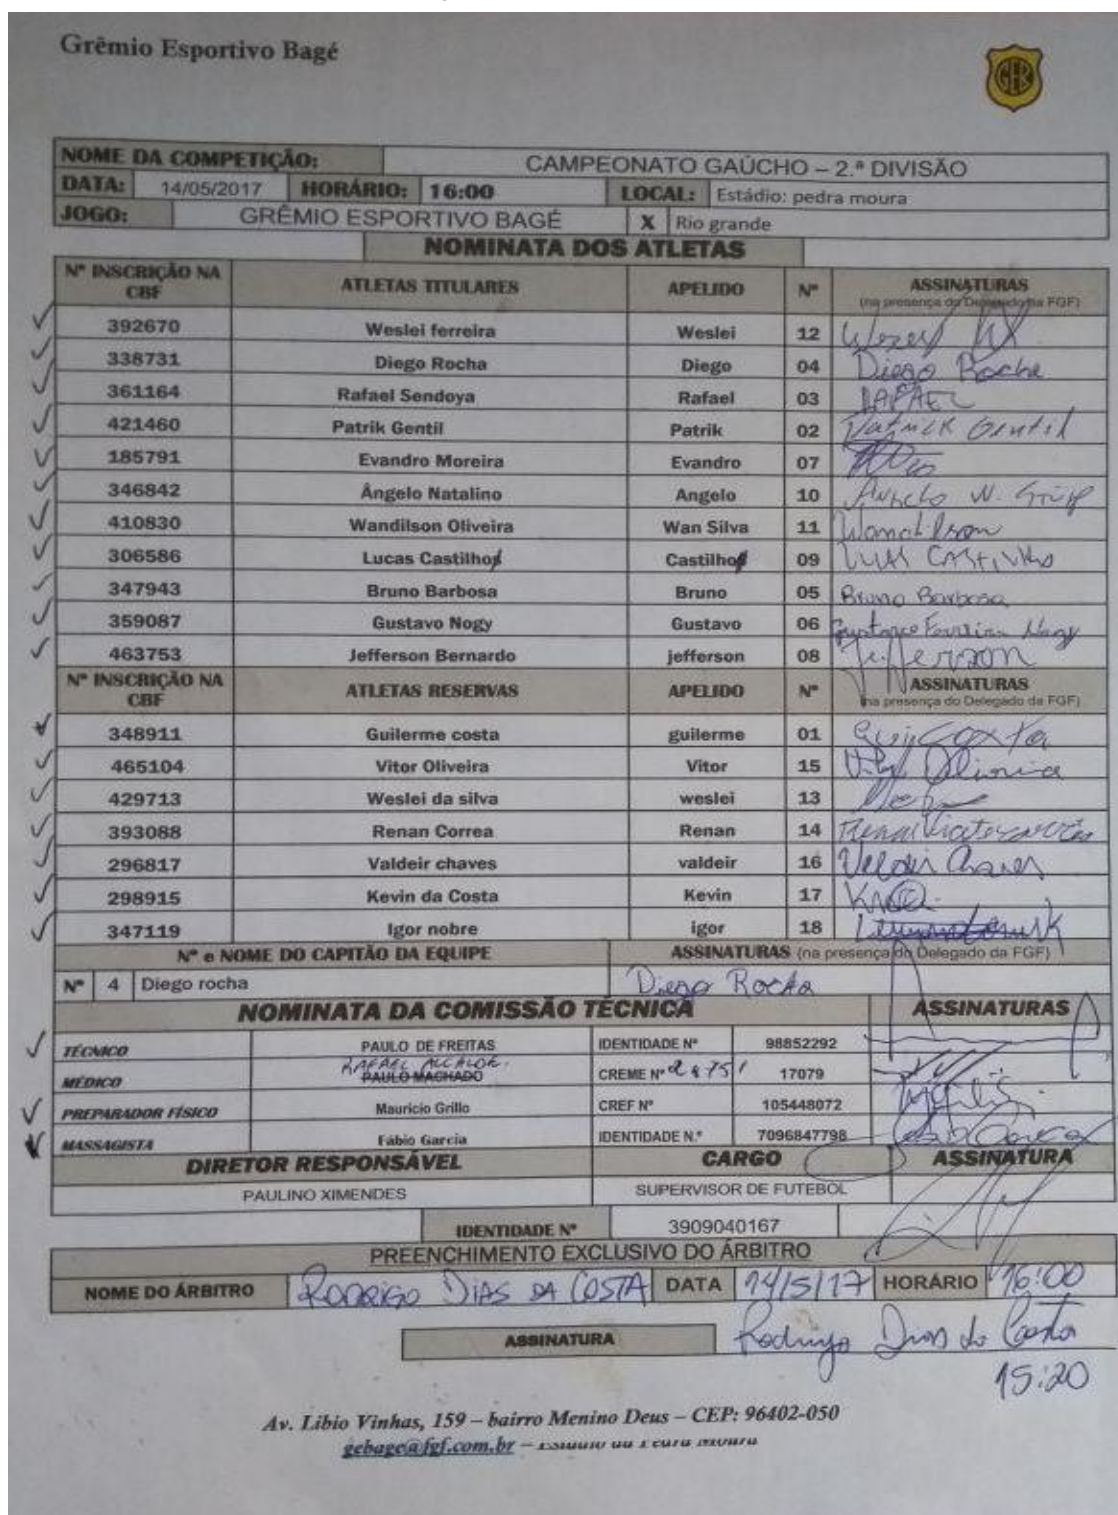 Grêmio Esportivo Bagé
GEB
NOME DA COMPETIÇÃO: CAMPEONATO GAÚCHO – 2.ª DIVISÃO
DATA: 14/05/2017 HORÁRIO: 16:00 LOCAL: Estádio: pedra moura
JOGO: GRÊMIO ESPORTIVO BAGÉ X Rio grande
NOMINATA DOS ATLETAS
Nº INSCRIÇÃO NA CBF ATLETAS TITULARES APELIDO Nº ASSINATURAS
(na presença do Delegado da FGF)
392670 Weslei ferreira Weslei 12
338731 Diego Rocha Diego 04 Diego Rocha
361164 Rafael Sendoya Rafael 03 RAFAEL
421460 Patrik Gentil Patrik 02 Patrick Gentil
185791 Evandro Moreira Evandro 07
346842 Ângelo Natalino Angelo 10 Angelo N.
410830 Wandilson Oliveira Wan Silva 11 Wandilson
306586 Lucas Castilho Castilho 09 LUCAS CASTILHO
347943 Bruno Barbosa Bruno 05 Bruno Barbosa
359087 Gustavo Nogy Gustavo 06 Gustavo Ferreira Nagy
463753 Jefferson Bernardo jefferson 08 Jefferson
Nº INSCRIÇÃO NA CBF ATLETAS RESERVAS APELIDO Nº ASSINATURAS
(na presença do Delegado da FGF)
348911 Guilerme costa guilerme 01 Gui Costa
465104 Vitor Oliveira Vitor 15 Vitor Oliveira
429713 Weslei da silva weslei 13
393088 Renan Correa Renan 14 Renan
296817 Valdeir chaves valdeir 16 Valdeir Chaves
298915 Kevin da Costa Kevin 17
347119 Igor nobre igor 18
Nº e NOME DO CAPITÃO DA EQUIPE ASSINATURAS (na presença do Delegado da FGF)
Nº 4 Diego rocha Diego Rocha
NOMINATA DA COMISSÃO TÉCNICA ASSINATURAS
TÉCNICO PAULO DE FREITAS IDENTIDADE Nº 98852292
RAFAEL ALCALDE.
MÉDICO PAULO MACHADO CREME Nº 28751 17079
PREPARADOR FÍSICO Mauricio Grillo CREF Nº 105448072
MASSAGISTA Fábio Garcia IDENTIDADE N.º 7096847798 Fabio Garcia
DIRETOR RESPONSÁVEL CARGO ASSINATURA
PAULINO XIMENDES SUPERVISOR DE FUTEBOL
IDENTIDADE Nº 3909040167
PREENCHIMENTO EXCLUSIVO DO ÁRBITRO
NOME DO ÁRBITRO RODRIGO DIAS DA COSTA DATA 14/5/17 HORÁRIO 16:00
ASSINATURA Rodrigo Dias da Costa
15:20
Av. Libio Vinhas, 159 – bairro Menino Deus – CEP: 96402-050
gebage@fgf.com.br – Estádio da Pedra Moura